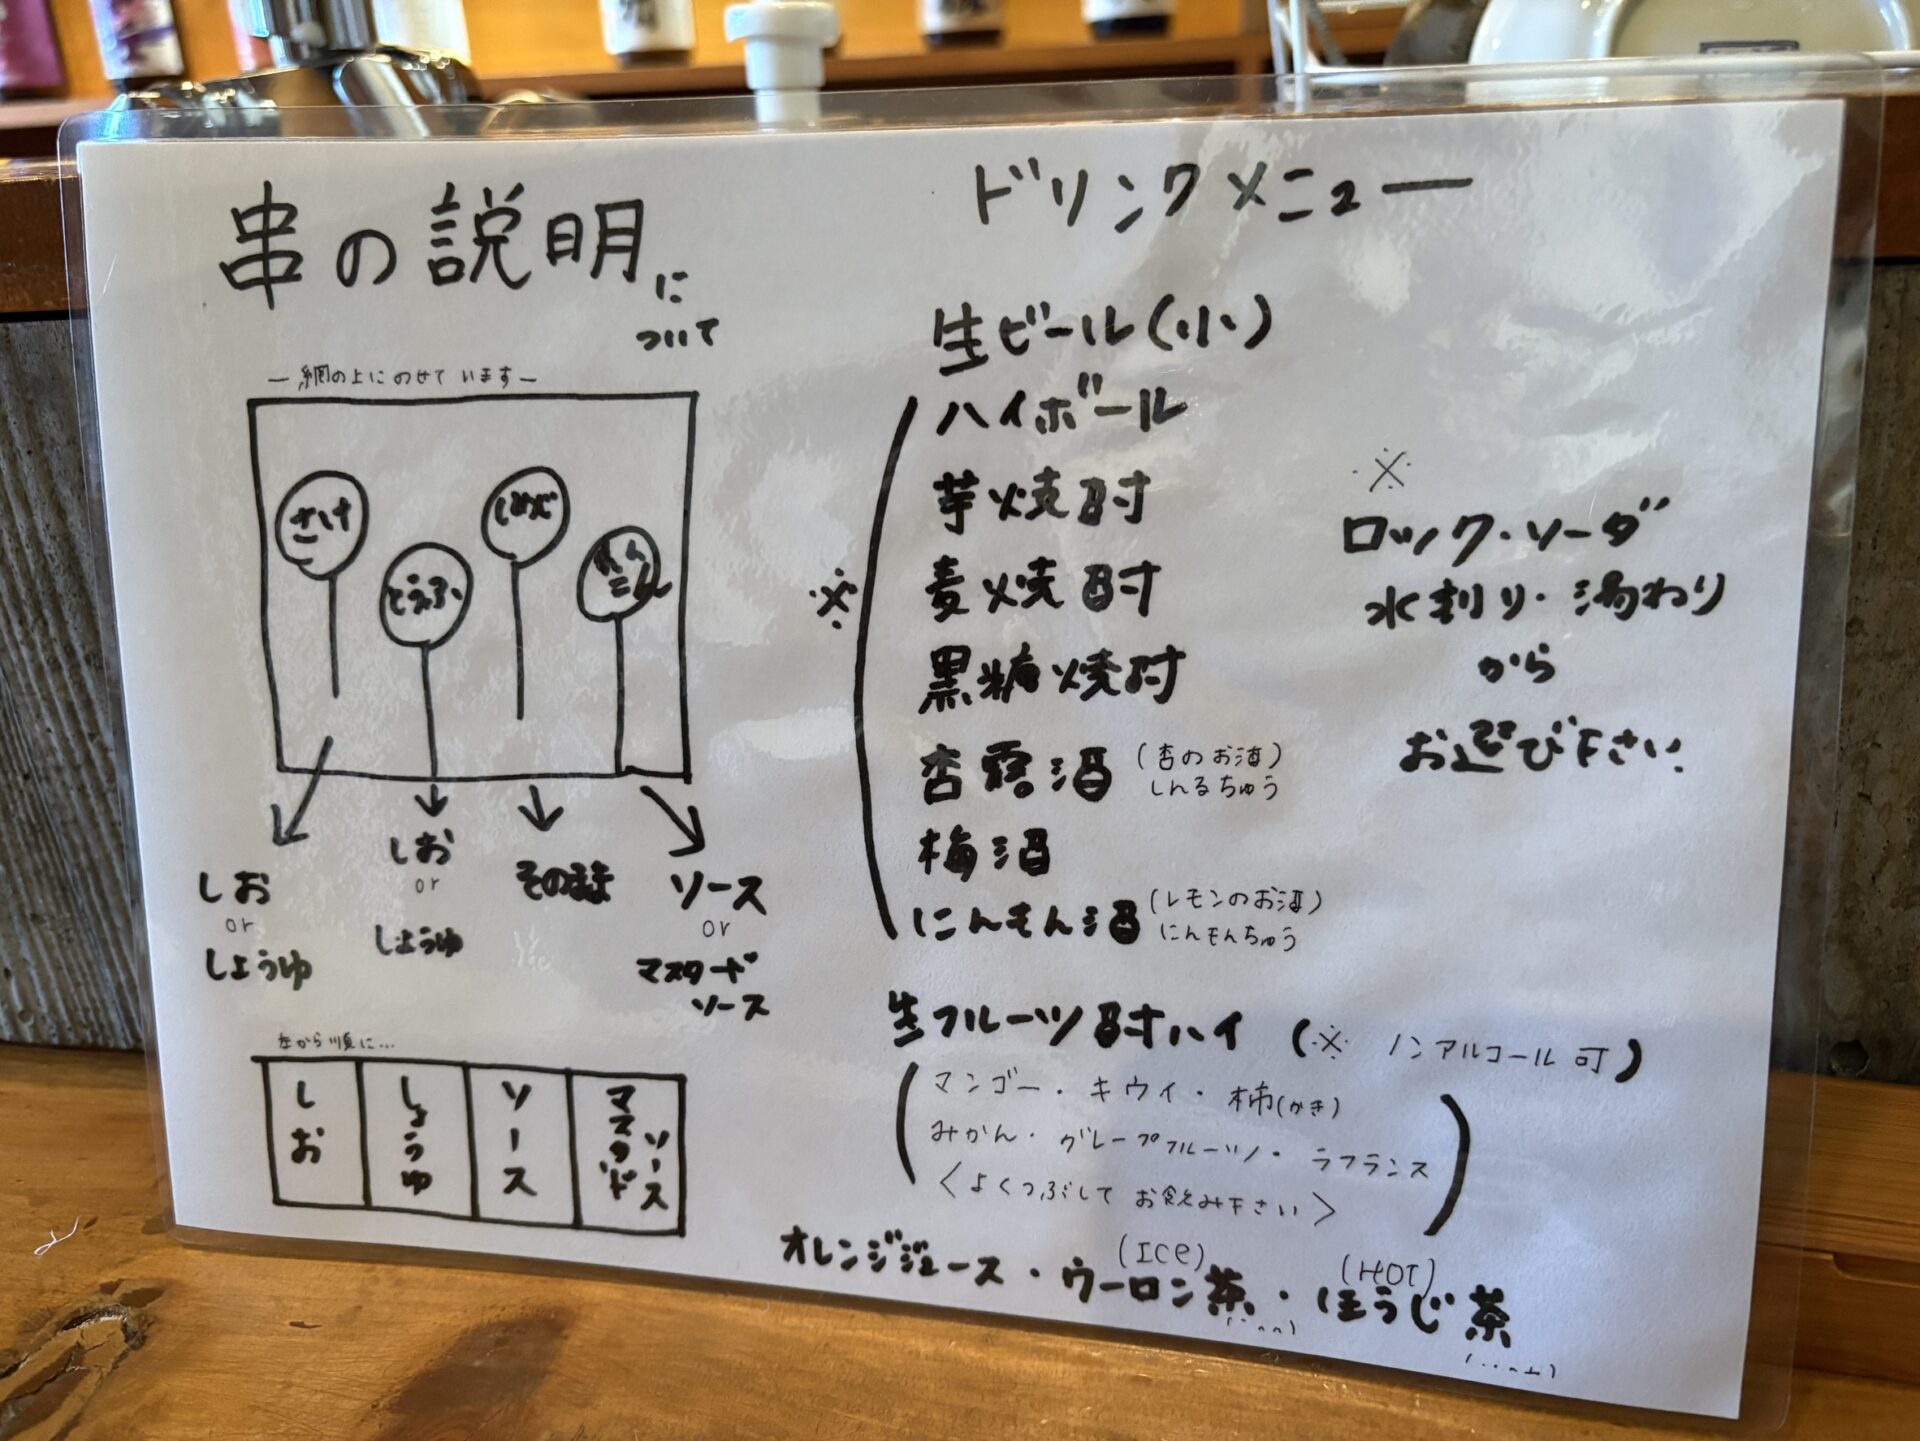 串の説明に
ついて
― 網の上にのせています ―
さけ
とうふ
しめじ
しお
or
しょうゆ
しお
or
しょうゆ
そのまま
ソース
or
マスタード
ソース
左から順に…
しお
しょうゆ
ソース
マスタード
ソース
ドリンクメニュー
生ビール(小)
※
ハイボール
芋焼酎
麦焼酎
黒糖焼酎
杏露酒 (杏のお酒)
しんるちゅう
梅酒
にんもん酒 (レモンのお酒)
にんもんちゅう
※
ロック・ソーダ
水割り・湯わり
から
お選び下さい
生フルーツ酎ハイ (※ ノンアルコール可)
(マンゴー・キウイ・柿(かき)
みかん・グレープフルーツ・ラフランス
〈よくつぶして お飲み下さい〉)
(ICE) (HOT)
オレンジジュース・ウーロン茶・ほうじ茶